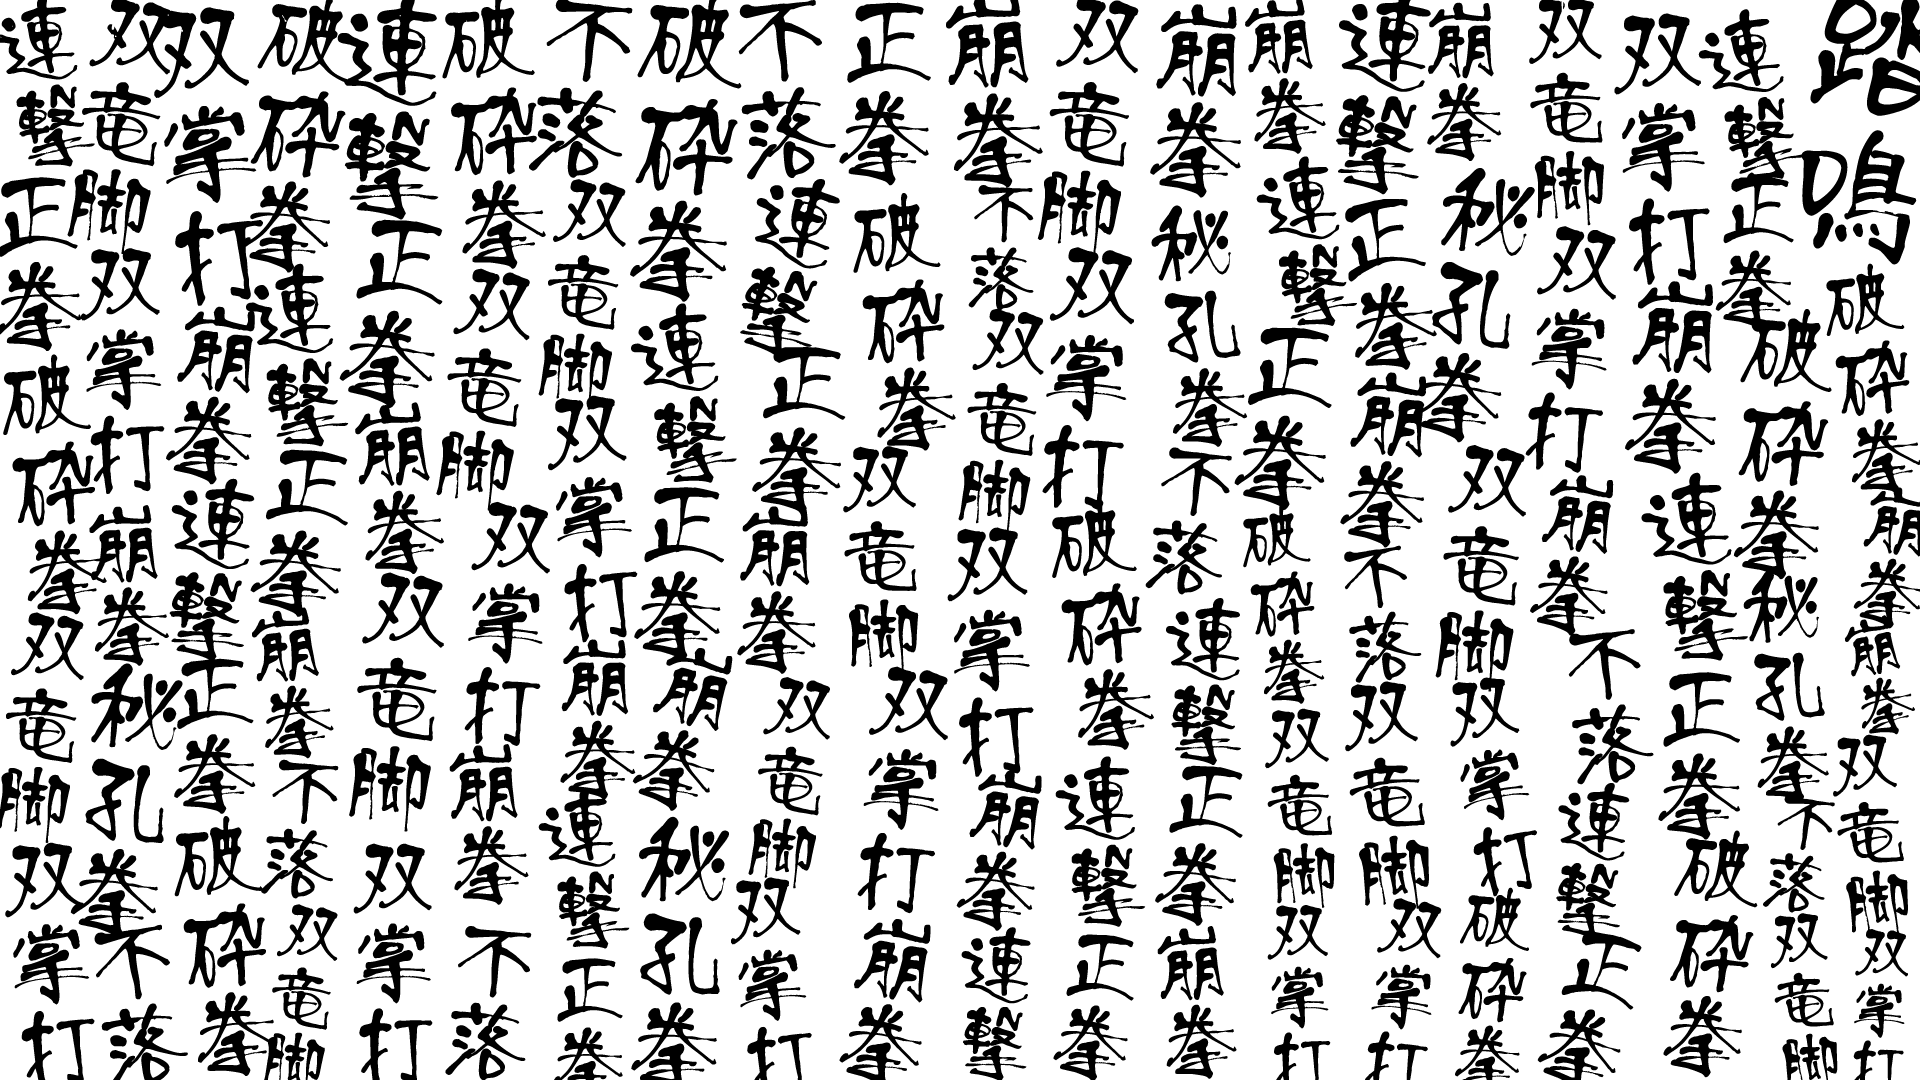 踏鳴破砕拳崩拳崩拳双竜脚双掌打
連撃正拳破砕拳秘孔拳不落双竜脚
双掌打崩拳連撃正拳破砕拳
双竜脚双掌打崩拳不落連撃正拳
崩拳秘孔拳双竜脚双掌打破砕拳
連撃正拳崩拳不落双竜脚双掌打
崩拳連撃正拳破砕拳双竜脚双掌打
崩拳秘孔拳不落連撃正拳崩拳
双竜脚双掌打破砕拳連撃正拳
崩拳不落双竜脚双掌打崩拳連撃
正拳破砕拳双竜脚双掌打崩拳
不落連撃正拳崩拳双竜脚双掌打
破砕拳連撃正拳崩拳秘孔拳
不落双竜脚双掌打崩拳連撃正拳
破砕拳双竜脚双掌打崩拳不落
連撃正拳崩拳双竜脚双掌打
破砕拳連撃正拳崩拳不落双竜脚
双掌打崩拳連撃正拳破砕拳
双竜脚双掌打崩拳秘孔拳不落
連撃正拳破砕拳双竜脚双掌打